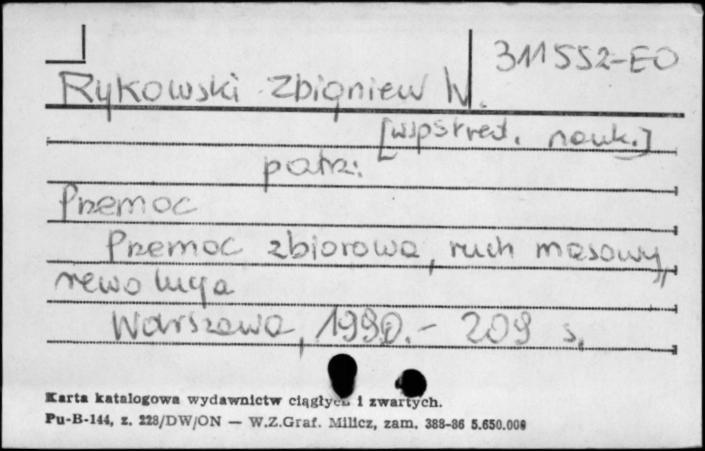 311552-EO
Rykowski Zbigniew W.
[wspśred. nauk.]
patrz:
Przemoc
Przemoc zbiorowa, ruch masowy,
rewolucja
Warszawa, 1990. - 209 s.
Karta katalogowa wydawnictw ciągłych i zwartych.
Pu-B-144, z. 228/DW/ON — W.Z.Graf. Milicz, zam. 388-86 5.650.000